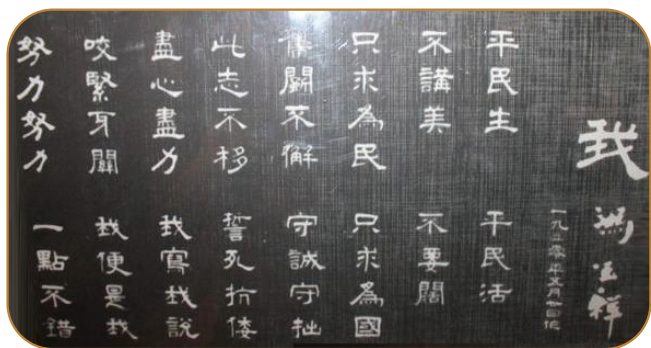 我
馮玉祥
一九零年五月廿四
平民生　平民活
不講美　不要闊
只求為民　只求為國
奮鬭不懈　守誠守拙
此志不移　誓死抗倭
盡心盡力　我寫我說
咬緊牙關　我便是我
努力努力　一點不錯